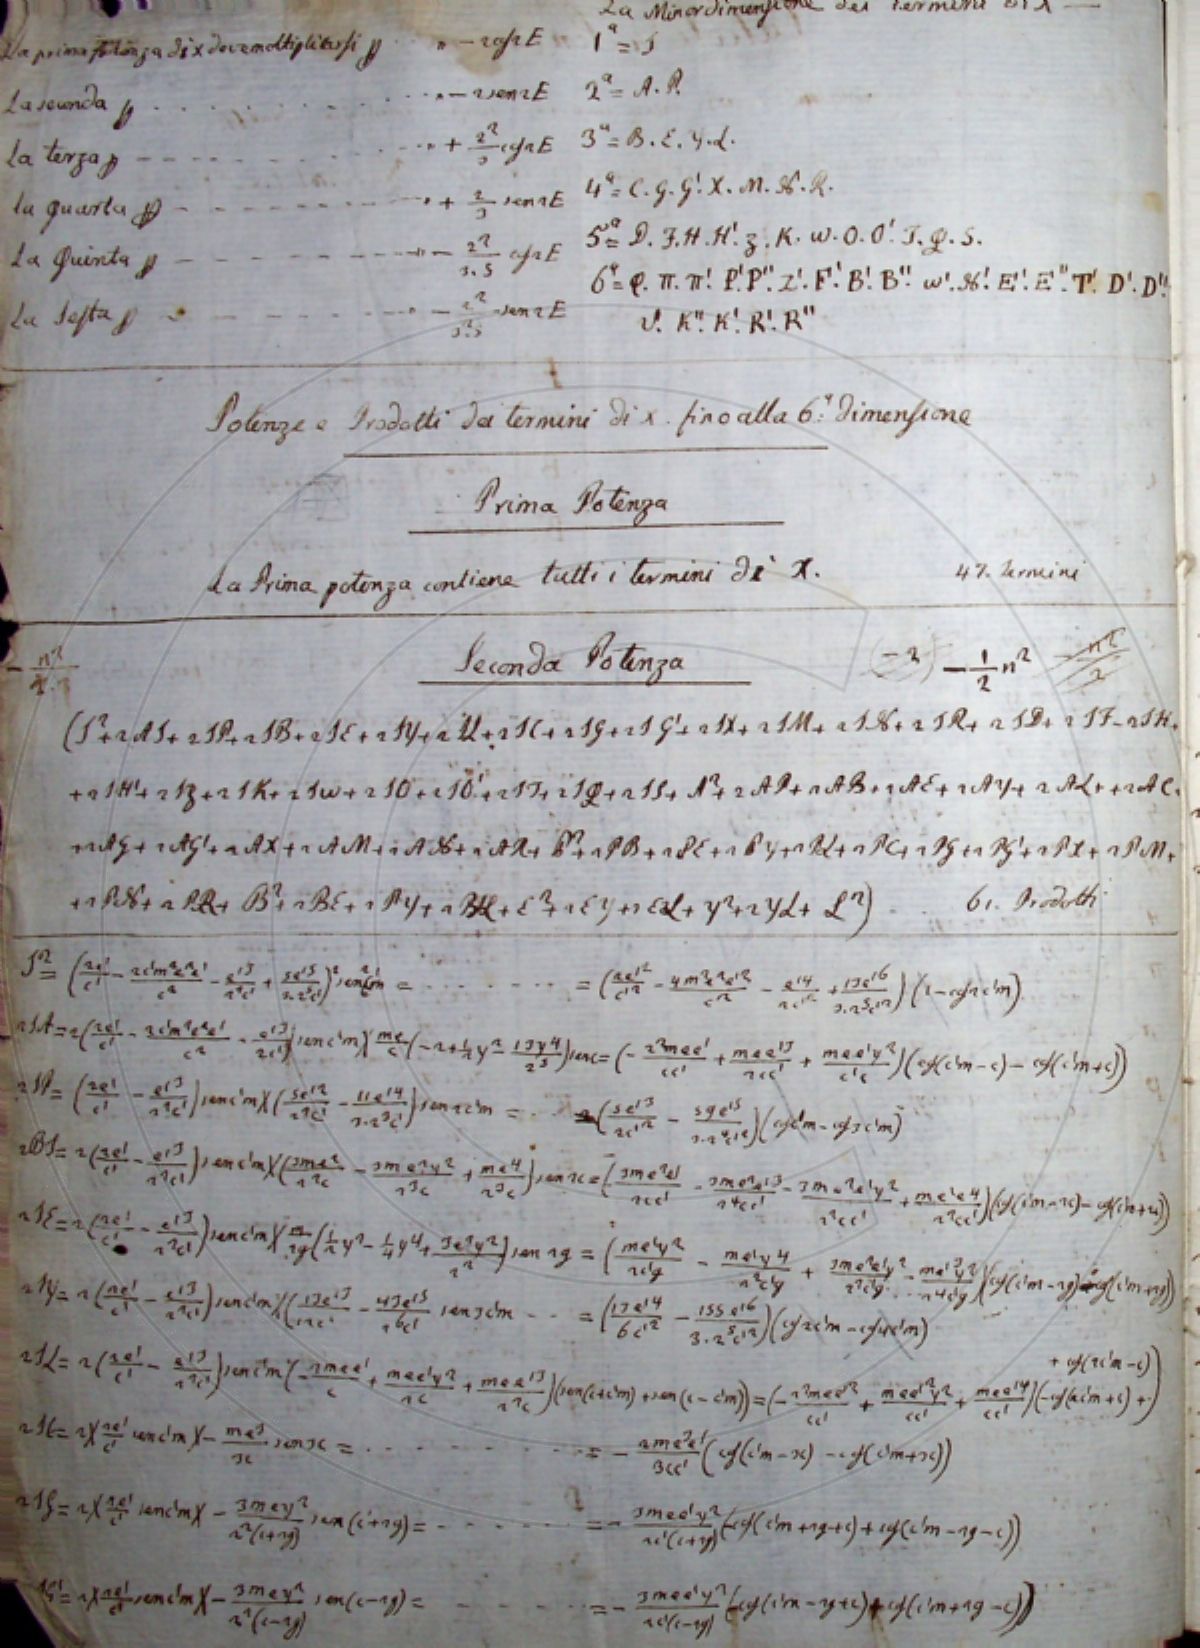 La Minordimensione dei termini di x —
La prima potenza di x deve moltiplicarsi p - - „ — 2cos2E 1ª = S
La seconda p - - - „ — 2sen2E 2ª = A. P.
La terza p - - - „ + 2²/3 cos2E 3ª = B. E. Y. L.
La quarta p - - - „ + 2/3 sen2E 4ª = C. G. G'. X. M. N. R.
La Quinta p - - - — 2²/3.5 cos2E 5ª = D. F. H. H'. z. K. w. O. O'. T. Q. S.
La Sesta p - - - — 2²/3².5 sen2E 6ª = π. π'. P'. P''. Z'. F'. B'. B''. w'. N'. E'. E''. T'. D'. D''.
K''. K'. R'. R''
Potenze e Prodotti dei termini di x. fino alla 6ª dimensione
Prima Potenza
La Prima potenza contiene tutti i termini di X. 47. Termini
Seconda Potenza — 1/2 n²
(S²+2AS+2SP+2SB+2SE+2SY+2SL+2SC+2SG+2SG'+2SX+2SM+2SN+2SR+2SD+2SF+2SH+
+2SH'+2Sz+2SK+2Sw+2SO+2SO'+2ST+2SQ+2SS+A²+2AP+2AB+2AE+2AY+2AL++2AC+
+2AG+2AG'+2AX+2AM+2AN+2AR+P²+2PB+2PE+2PY+2PL+2PC+2PG+2PG'+2PX+2PM+
+2PN+2PR+B²+2BE+2BY+2BL+E²+2EY+2EL+Y²+2YL+L²) . . 61. Prodotti
S²= (2e'/c' - 2c'm²e²e'/c² - e'³/2²c' + 5e'⁵/3.2⁵c')² sen²c'm = . . . . = (2e'²/c'² - 4m²e²e'²/c'² - e'⁴/2c'² + 13e'⁶/3.2⁵c'²) (1-cos2c'm)
2SA= 2(2e'/c' - 2c'm²e²e'/c² - e'³/2c') senc'm)(me/c(-2+½y² - 13y⁴/2⁵) senc= (- 2²mee'/cc' + mee'³/2cc' + mee'y²/c'c)(cos(c'm-c) - cos(c'm+c))
2SP= (2e'/c' - e'³/2²c') senc'm)(5e'²/2²c' - 11e'⁴/3.2³c') sen2c'm = . . (5e'³/2c'² - 59e'⁵/3.2⁴c'²)(cosc'm - cos3c'm)
2BS= 2(2e'/c' - e'³/2²c') senc'm)(3me²/2²c - 3me²y²/2³c + me⁴/2³c) sen2c= (3me²e'/2cc' - 3me²e'³/2⁴cc' - 3me²e'y²/2²cc' + me'e⁴/2²cc')(cos(c'm-2c) - cos(c'm+2c))
2SE= 2(2e'/c' - e'³/2²c') senc'm)(m/2g(½y² - ¼y⁴ + 3e²y²/2²) sen2g = (me'y²/2c'g - me'y⁴/2²c'g + 3me²e'y²/2²c'g - me'³y²/2⁴c'g)(cos(c'm-2g) - cos(c'm+2g))
2SY= 2(2e'/c' - e'³/2²c') senc'm)(13e'³/12c' - 43e'⁵/2⁶c' sen3c'm . . = (13e'⁴/6c'² - 155e'⁶/3.2⁵c'²)(cos2c'm - cos4c'm)
2SL= 2(2e'/c' - e'³/2²c') senc'm (-2mee'/c + mee'y²/2c + mee'³/2²c)(sen(c+c'm) + sen(c-c'm)) = (-2²mee'²/cc' + mee'²y²/cc' + mee'⁴/cc')(-cos(2c'm+c) + + cos(2c'm-c))
2SC= 2)(2e'/c' senc'm)(- me³/3c sen3c = . . . . = - 2me³e'/3cc' (cos(c'm-3c) - cos(c'm+3c))
2SG= 2)(2e'/c' senc'm)(- 3mey²/2²(c+2g) sen(c+2g) = . . . . = - 3mee'y²/2c'(c+2g) (-cos(c'm+2g+c) + cos(c'm-2g-c))
2SG'= 2)(2e'/c' senc'm)(- 3mey²/2²(c-2g) sen(c-2g) = . . . . = - 3mee'y²/2c'(c-2g) (-cos(c'm-2g+c) + cos(c'm+2g-c))